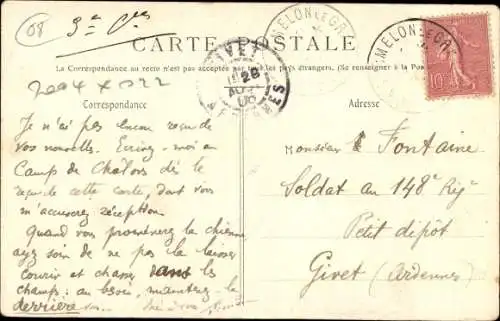 68
3e Cie
CARTE POSTALE
MELON-LE-GR
MELON-LE-GR
GIVET
28
ARDENNES
10
La Correspondance au recto n'est pas acceptée par tous les pays étrangers. (Se renseigner à la Poste)
2004 x 022
Correspondance
Adresse
Je n'ai pas encore reçu de
vos nouvelles. Écrivez-moi au
Camp de Chalons dès le
reçu de cette carte, dont vous
m'accuserez réception
Quand vous promènerez la chienne
ayez soin de ne pas la laisser
courir et chasser dans les
champs: au besoin, maintenez-la
derrière vous.
Monsieur Fontaine
Soldat au 148e Rég
Petit dépôt
Givet (Ardennes)